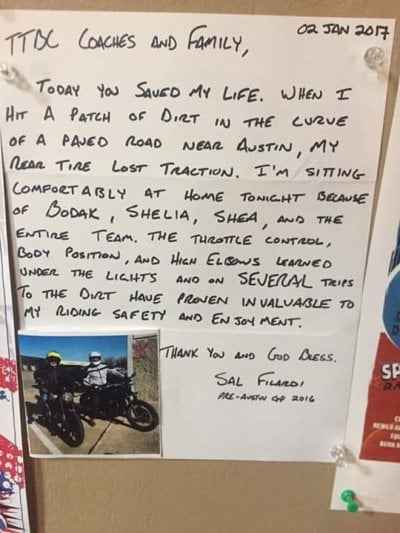 02 JAN 2017
TTDC COACHES AND FAMILY,
TODAY YOU SAVED MY LIFE. WHEN I
HIT A PATCH OF DIRT IN THE CURVE
OF A PAVED ROAD NEAR AUSTIN, MY
REAR TIRE LOST TRACTION. I'M SITTING
COMFORTABLY AT HOME TONIGHT BECAUSE
OF BODAK, SHELIA, SHEA, AND THE
ENTIRE TEAM. THE THROTTLE CONTROL,
BODY POSITION, AND HIGH ELBOWS LEARNED
UNDER THE LIGHTS AND ON SEVERAL TRIPS
TO THE DIRT HAVE PROVEN INVALUABLE TO
MY RIDING SAFETY AND ENJOYMENT.
THANK YOU AND GOD BLESS.
SAL FILARDI
PRE-AUSTIN GP 2016
SP